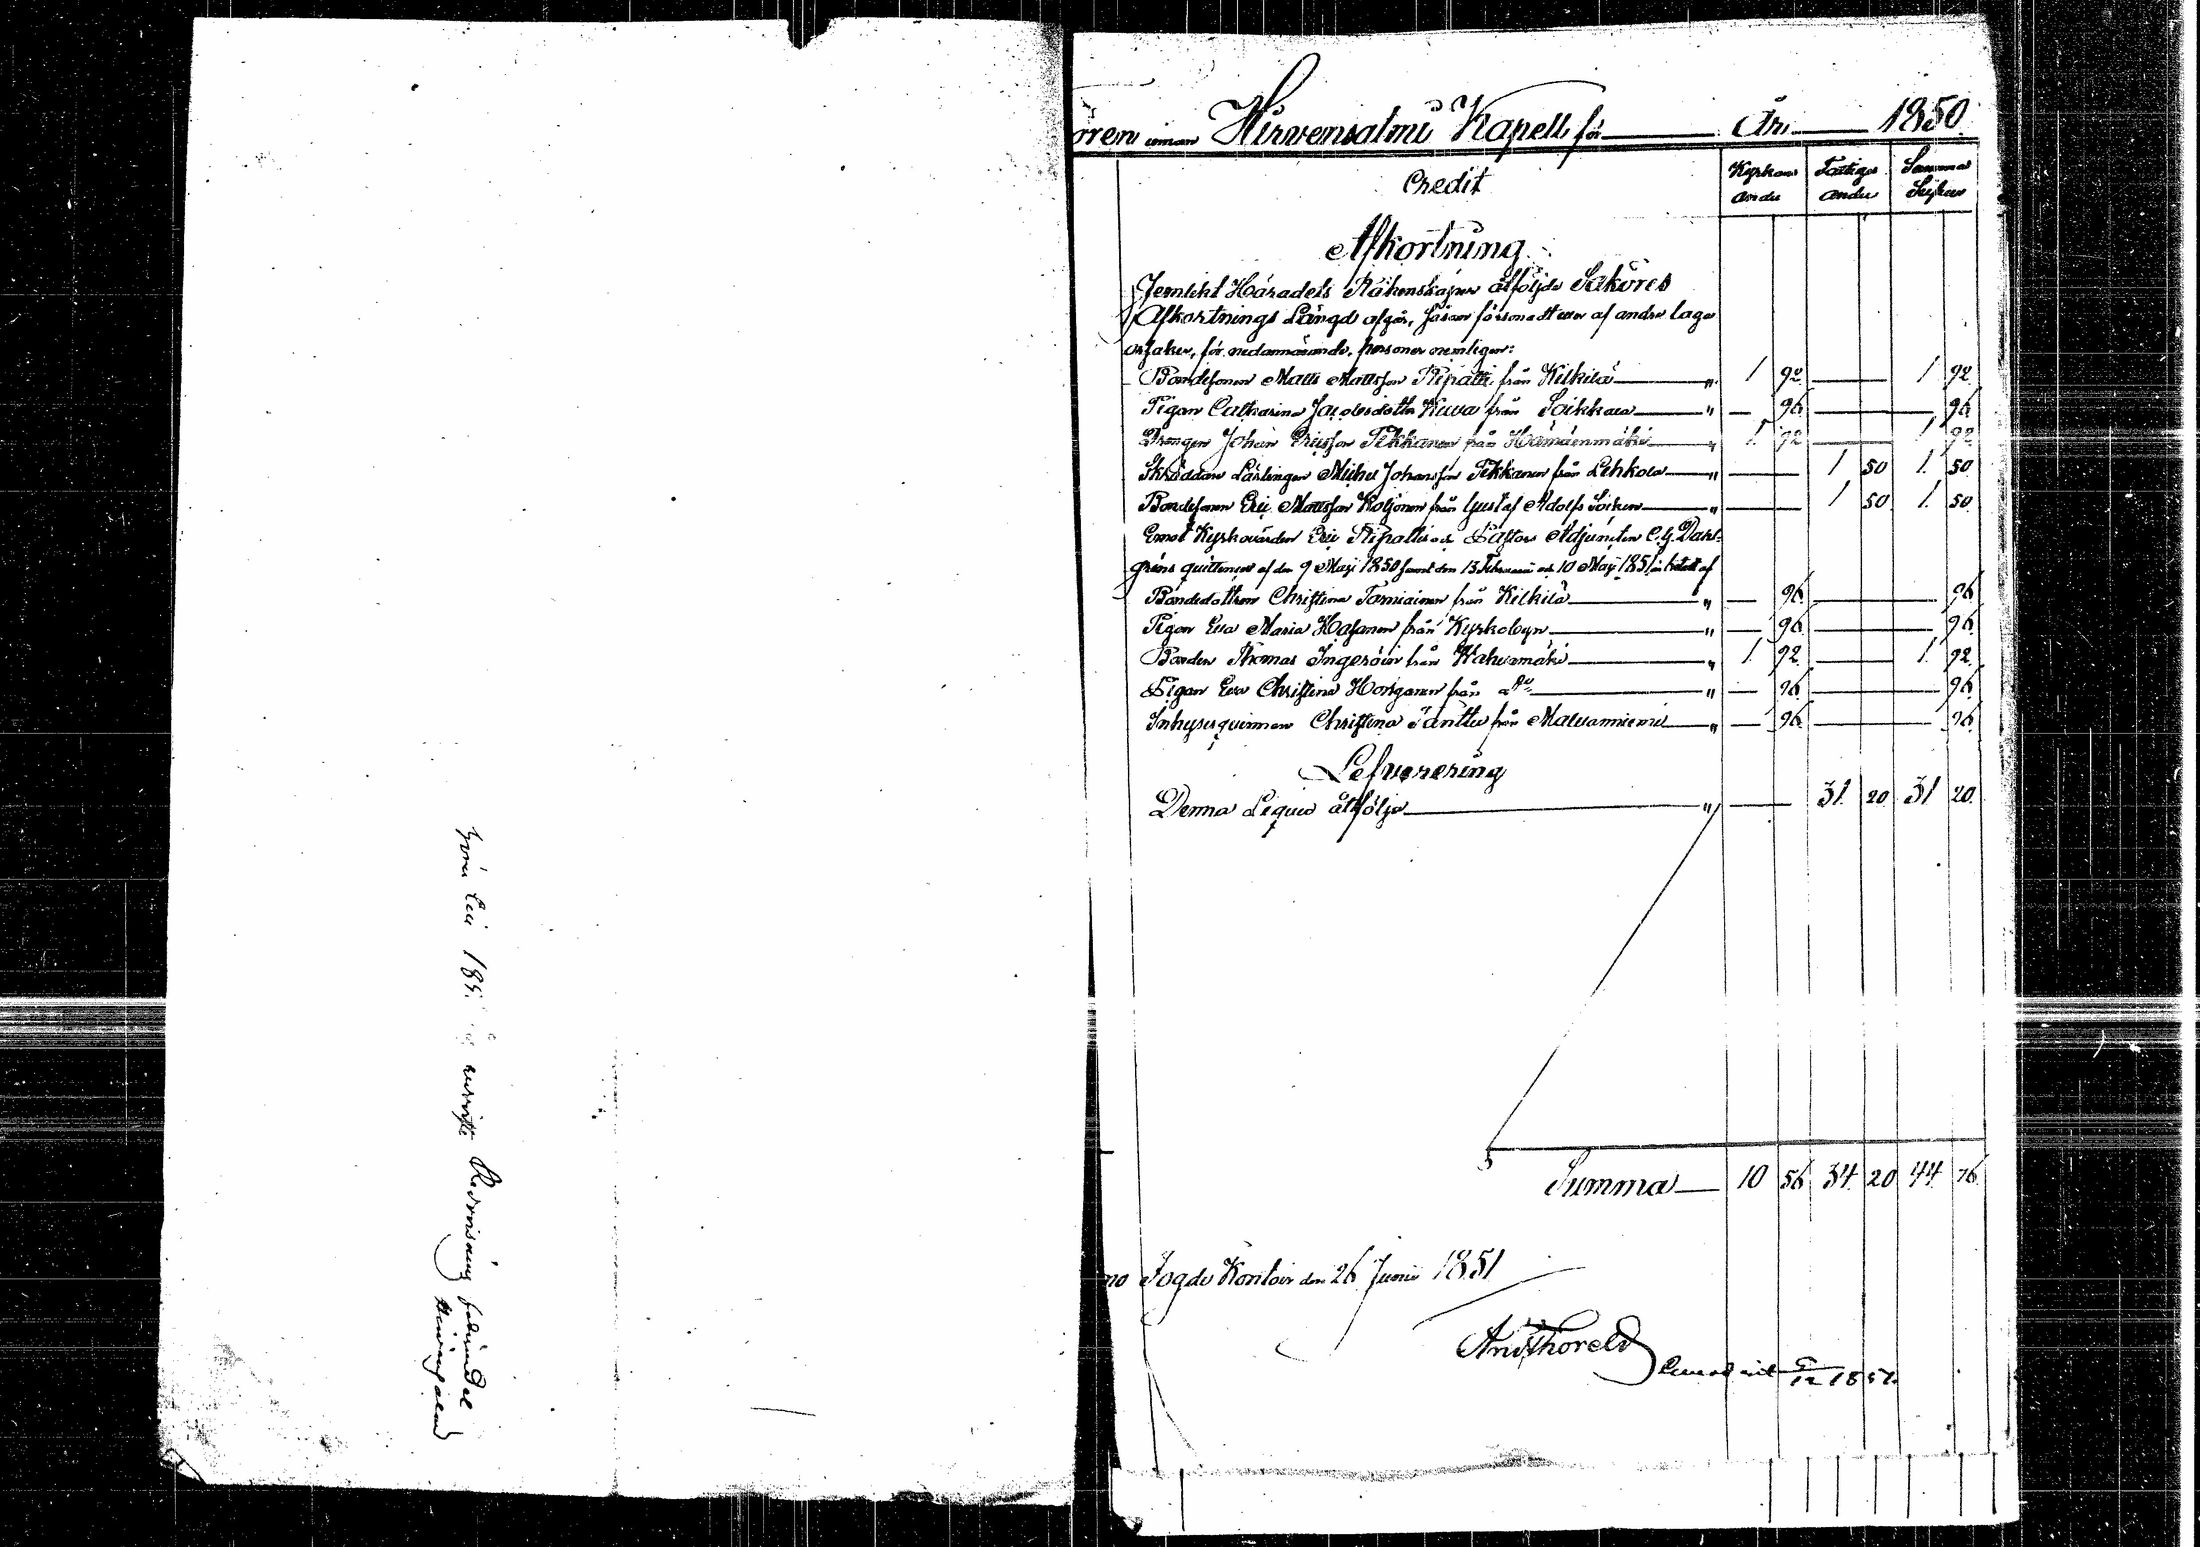 inom Hirvensalmi Kapell för År 1850
Credit
Kyrkans andel
Fattiges andel
Summa Silfver
Afkortning
Jemlikt Häradets Räkenskaper åtföljde Saköres
Afkortnings Längd afgår, såsom försonadt eller af andra laga
orsaker, för nedannämnde personer nemligen:
Bondesonen Matts Mattsson Ripatti från Kilkilä " 1 92 1 92
Pigan Catharina Jacobsdotter Kuva från Soikkala " 96 96
Drengen Johan Ericsson Tikkanen från Hämäenmäki " 1 92 1 92
Skräddare Lärlingen Michel Johansson Tikkanen från Lehkola " 1 50 1 50
Bondesonen Eric Mattsson Koljonen från Gustaf Adolfs Socken " 1 50 1 50
Emot Kyrkovärden Eric Ripattis och Pastors Adjuncten C. G. Dahl-
gréns quittencer af den 9 Maji 1850 samt den 13 Februarii och 10 Maji 1851 betalt af
Bondedottren Christina Torniainen från Kilkilä " 96 96
Pigan Eva Maria Hasanen från Kyrkobyn " 96 96
Bonden Thomas Ingeröin från Wahvamäki " 1 92 1 92
Pigan Eva Christina Horganen från D:o " 96 96
Inhysesqvinnan Christina Jänttu från Malvaniemi " 96 96
Lefverering
Denna Liquid åtfölja " 31 20 31 20
Summa 10 56 34 20 44 76
Fogde Kontoir den 26 Junii 1851
And Thoreld
1851
185
Redovisning